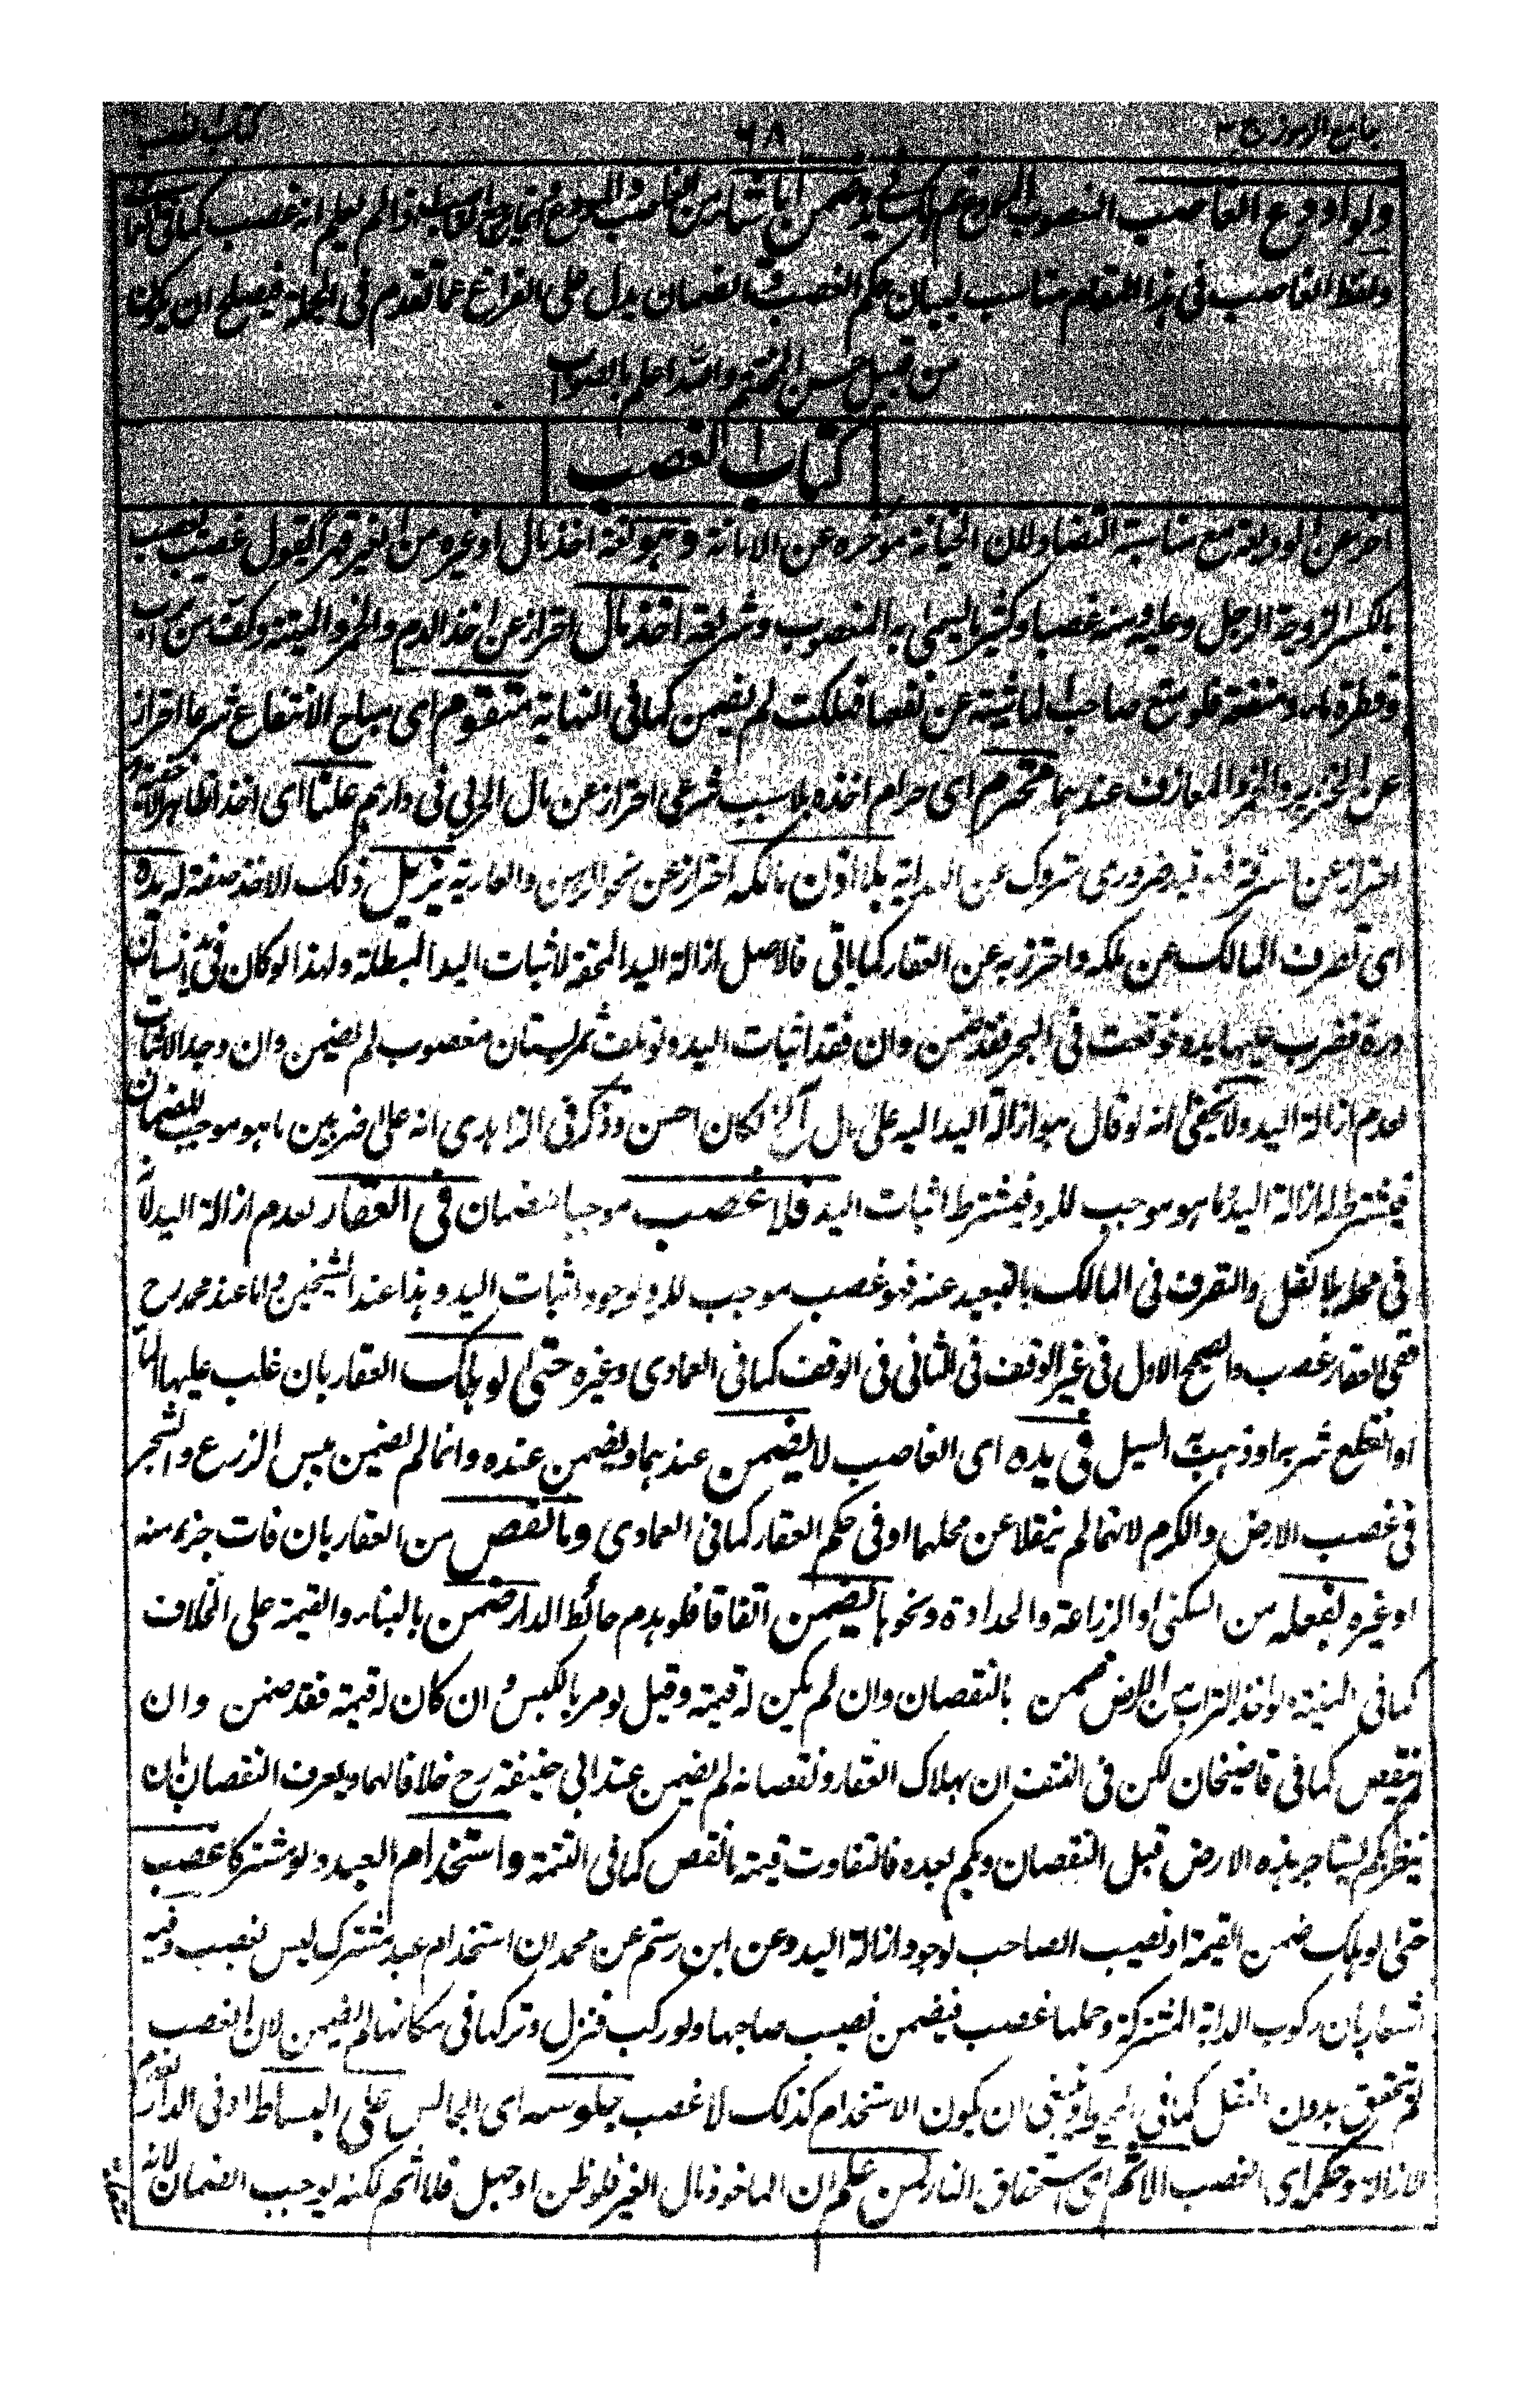 جامع الرموز ج ٣ ٦٨ كتاب الغصب
ولو اودع الغاصب المغصوب المودع فهلك ضمن ايا شاء من الغاصب والمودع اذا لم يعلم انه غصب كما في
ولفظ الغاصب في هذا المقام مناسب لبيان حكم الغصب والضمان يدل على الفراغ عما تقدم في الجملة فيصلح ان يكون
من قبيل حسن المختتم والله اعلم بالصواب
كتاب الغصب
اخر عن الوديعة مع مناسبة التضاد لان الخيانة مؤخرة عن الامانة وهو لغة اخذ مال او غيره من الغير قهرا يقول غصب يغصب
بالكسر الزوجة الرجل وعليه ومنه غصبا وكثيرا يسمى به المغصوب وشريعة اخذ مال احتراز عن اخذ الدم والخمر والميتة وكف من تراب
وقطرة ماء ومنفعة فلو منع صاحب الماشية عن نفعها فهلكت لم يضمن كما في النهاية متقوم اى مباح الانتفاع شرعا احتراز
عن الخنزير والخمر والمعازف عندهما محترم اى حرام اخذه بلا سبب شرعى احتراز عن مال الحربى فى دارهم علنا اى اخذا ظاهرا
احتراز عن السرقة قيد ضرورى متروك عن الهداية بلا اذن مالكه احتراز عن نحو الرهن والعارية يزيل ذلك الاخذ صفة له يده
اى تصرف المالك عن ملكه واحترز به عن العقار كما ياتى فالاصل ازالة اليد المحقة لا اثبات اليد المبطلة ولهذا لو كان فى يد انسان
درة فضرب عليها يده فوقعت فى البحر فقد ضمن وان فقد اثبات اليد ولو تلف ثمر بستان مغصوب لم يضمن وان وجد الاثبات
لعدم ازالة اليد ولا يخفى انه لو قال هو ازالة اليد اليه على مال آخ لكان احسن وذكر فى الزاهدى انه على ضربين ما هو موجب للضمان
فيشترط له ازالة اليد وما هو موجب للرد فيشترط اثبات اليد فلا غصب موجبا للضمان فى العقار لعدم ازالة اليد لانه
فى محله بلا نقل والتصرف فى المالك بالتبعيد عنه فهو غصب موجب للرد لوجود اثبات اليد وهذا عند الشيخين واما عند محمد رح
ففى العقار غصب والصحيح الاول فى غير الوقف فى الثانى فى الوقف كما فى العمادى وغيره حتى لو هلك العقار بان غلب عليها الماء
او انقطع شربها وذهب به السيل فى يده اى الغاصب لا يضمن عندهما ويضمن عنده وانما لم يضمن يبس الزرع والشجر
فى غصب الارض والكرم لانهما لم ينقلا عن محلها او فى حكم العقار كما فى العمادى وما نقص من العقار بان فات جزء منه
او غيره بفعله من السكنى او الزراعة والحدادة ونحوها يضمن اتفاقا فلو هدم حائط الدار ضمن بالبناء والقيمة على الخلاف
كما فى المنية ولو اخذ التراب من الارض ضمن بالنقصان وان لم يكن له قيمة وقيل يومر بالكبس وان كان له قيمة فقد ضمن وان
لم ينقص كما فى قاضيخان لكن فى النتف ان بهلاك العقار ونقصانه لم يضمن عند ابى حنيفة رح خلافا لهما ويعرف النقصان بان
ينظر بكم يستاجر هذه الارض قبل النقصان وبكم بعده فالتفاوت قيمة ما نقص كما فى التتمة واستخدام العبد ولو مشتركا غصب
حتى لو هلك ضمن القيمة او نصيب الصاحب لوجود ازالة اليد وعن ابن رستم عن محمد ان استخدام عبد مشترك ليس بغصب وفيه
اشعار بان ركوب الدابة المشتركة وحملها غصب فيضمن نصيب صاحبها ولو ركب فنزل وتركها فى مكانها لم يضمن لان الغصب
لم يتحقق بدون النقل كما فى المحيط وينبغى ان يكون الاستخدام كذلك لا غصب جلوسه اى الجالس على البساط او فى الدار لعدم
الازالة وحكمه اى الغصب الاثم اى استحقاق النار لمن علم ان الماخوذ مال الغير فلو ظن او جهل فلا اثم لكنه يوجب الضمان لانه